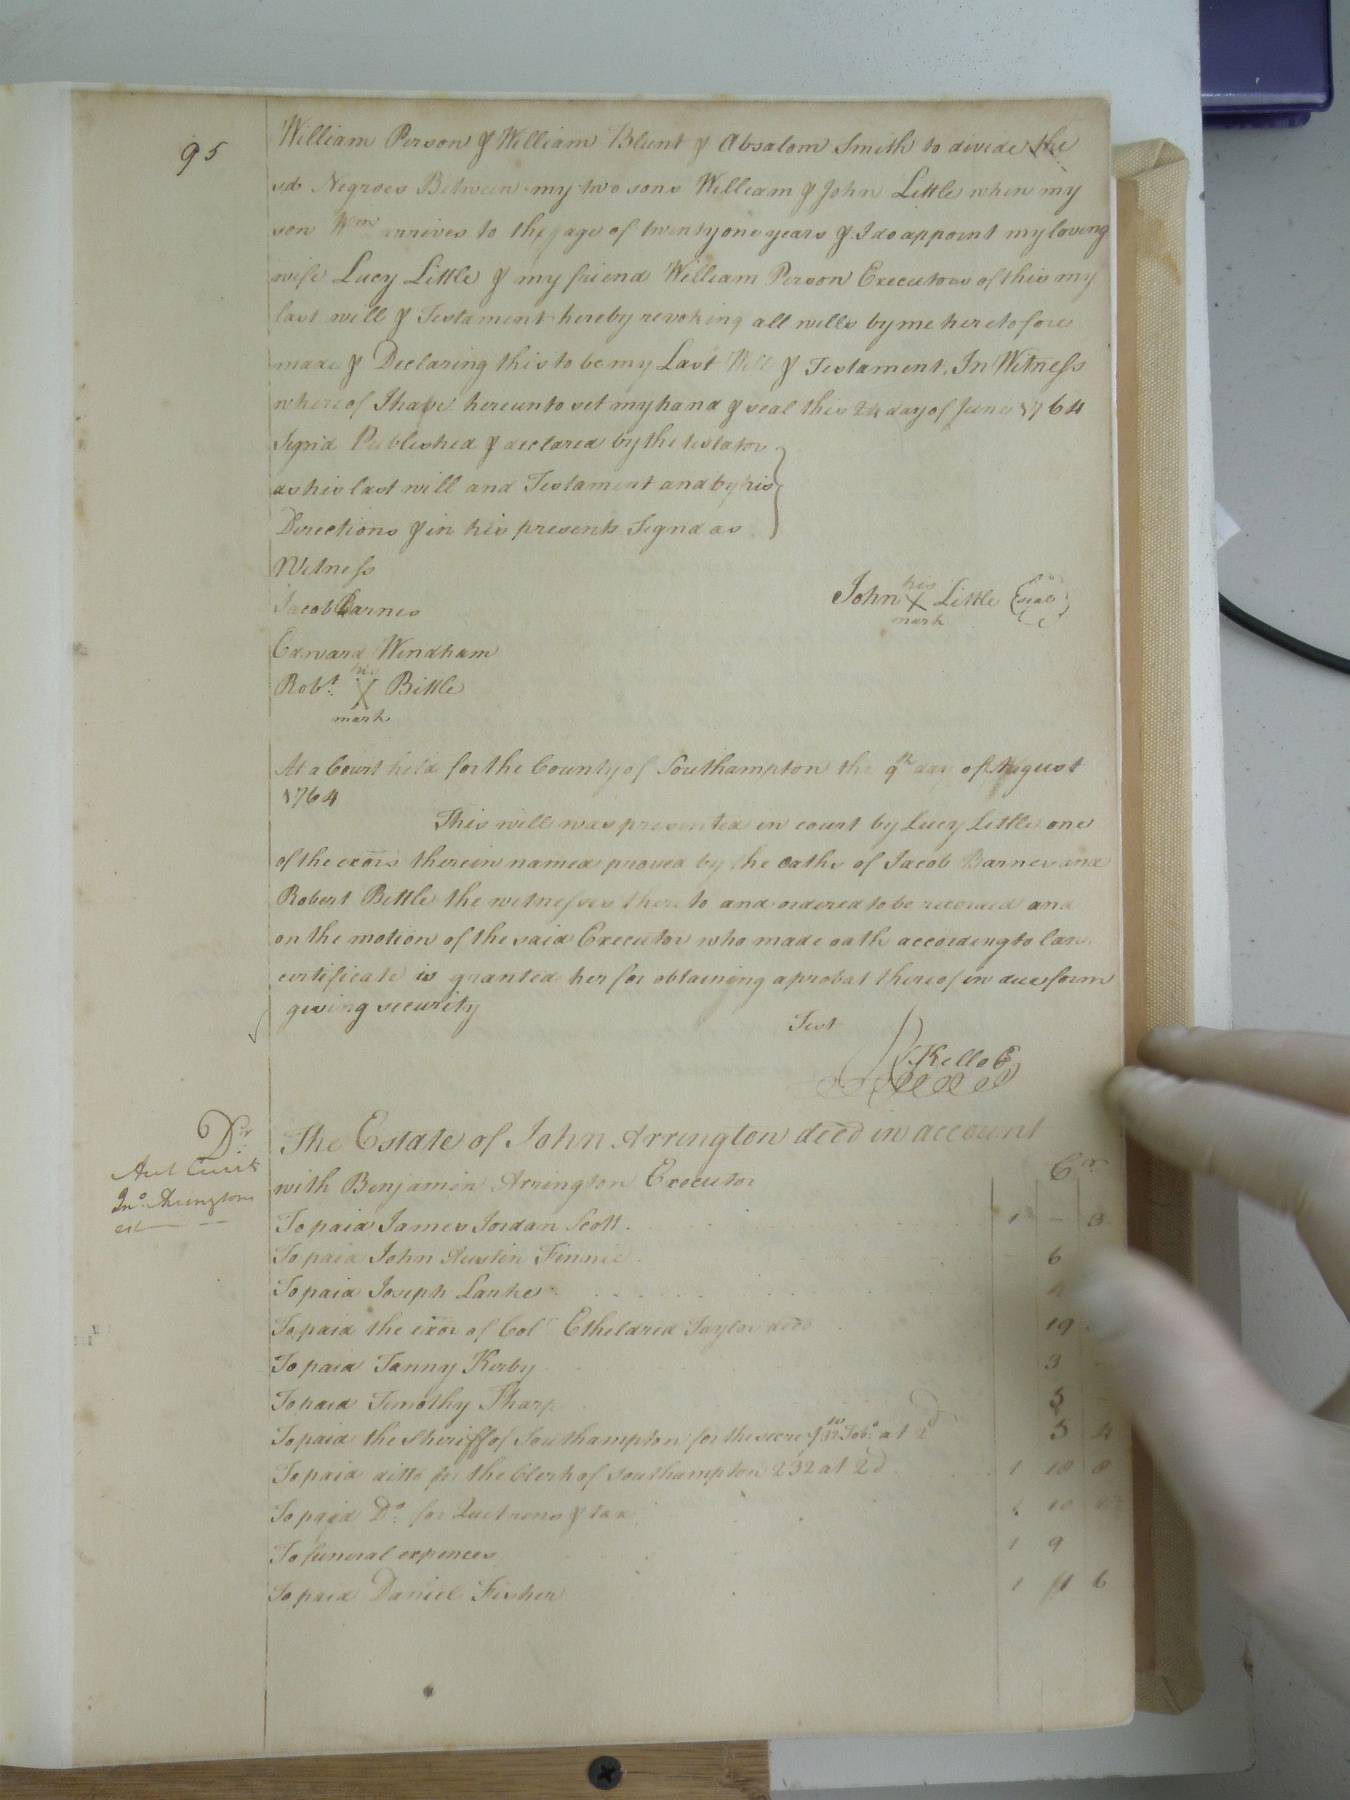 95
William Person & William Blunt & Absalom Smith to divide the
sd Negroes Between my two sons William & John Little when my
son Wm arrives to the age of twenty one years & I do appoint my loving
wife Lucy Little & my friend William Person Executors of this my
last will & Testament hereby revoking all wills by me heretofore
made & Declaring this to be my Last Will & Testament. In Witness
whereof I have hereunto set my hand & seal this 24 day of June 1764
Signd Published & declared by the testator
as his last will and Testament and by his
Directions & in his presents Signd as
Witness
John his X mark Little (seal)
Jacob Barnes
Edward Windham
Robt. his X mark Bittle
At a Court held for the County of Southampton the 9th day of August
1764
This will was presented in court by Lucy Little one
of the exors therein named proved by the oaths of Jacob Barnes and
Robert Bittle the witnesses thereto and ordered to be recorded and
on the motion of the said Executor who made oath according to law
certificate is granted her for obtaining a probat thereof in due form
giving security
Test
R Kello C
Dr. The Estate of John Arrington decd in account
Act Curt
Jno. Arringtons
est
with Benjamin Arrington Executor Cr
To paid James Jordan Scott 1 - 3
To paid John Austin Finnie 6
To paid Joseph Lanke
To paid the exor of Colo Etheldred Taylor decd 19
To paid Fanny Kirby 3 -
To paid Timothy Tharp 5 -
To paid the Sheriff of Southampton for the secrey 32 Tobo. at 2d 5 4
To paid ditto for the Clerk of Southampton 232 at 2d 1 18 8
To paid Do. for Quetrens & tax 10
To funeral expences 1 9
To paid Daniel Fisher 1 11 6